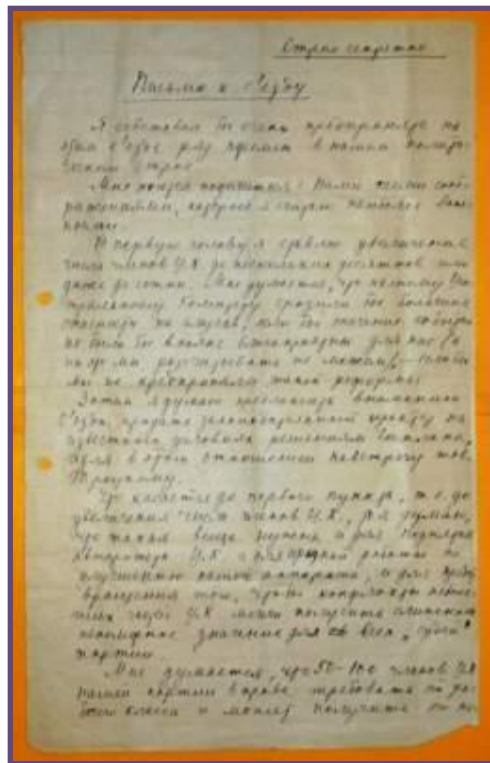 Строго секретно
Письмо к с'езду
Я советовал бы очень предпринять на
этом с'езде ряд перемен в нашем полити-
ческом строе.
Мне хочется поделиться с Вами теми сооб-
ражениями, которые я считаю наиболее важ-
ными.
В первую голову я ставлю увеличение
числа членов Ц.К. до нескольких десятков или
даже до сотни. Мне думается, что нашему Цен-
тральному Комитету грозили бы большие
опасности на случай, если бы течение событий
не было бы вполне благоприятно для нас (а
на это мы рассчитывать не можем), – если бы
мы не предприняли такой реформы.
Затем я думаю предложить вниманию
с'езда придать законодательный характер на
известных условиях решениям Госплана,
идя в этом отношении навстречу тов.
Троцкому.
Что касается до первого пункта, т.е. до
увеличения числа членов Ц.К., то я думаю,
что такая вещь нужна и для поднятия
авторитета Ц.К. и для серьезной работы по
улучшению нашего аппарата, и для пред-
вращения того, чтобы конфликты неболь-
ших частей Ц.К. могли получить слишком
непомерное значение для всех „судеб"
партии.
Мне думается, что 50–100 членов ЦК
наша партия вправе требовать от ра-
бочего класса и может получить от не-